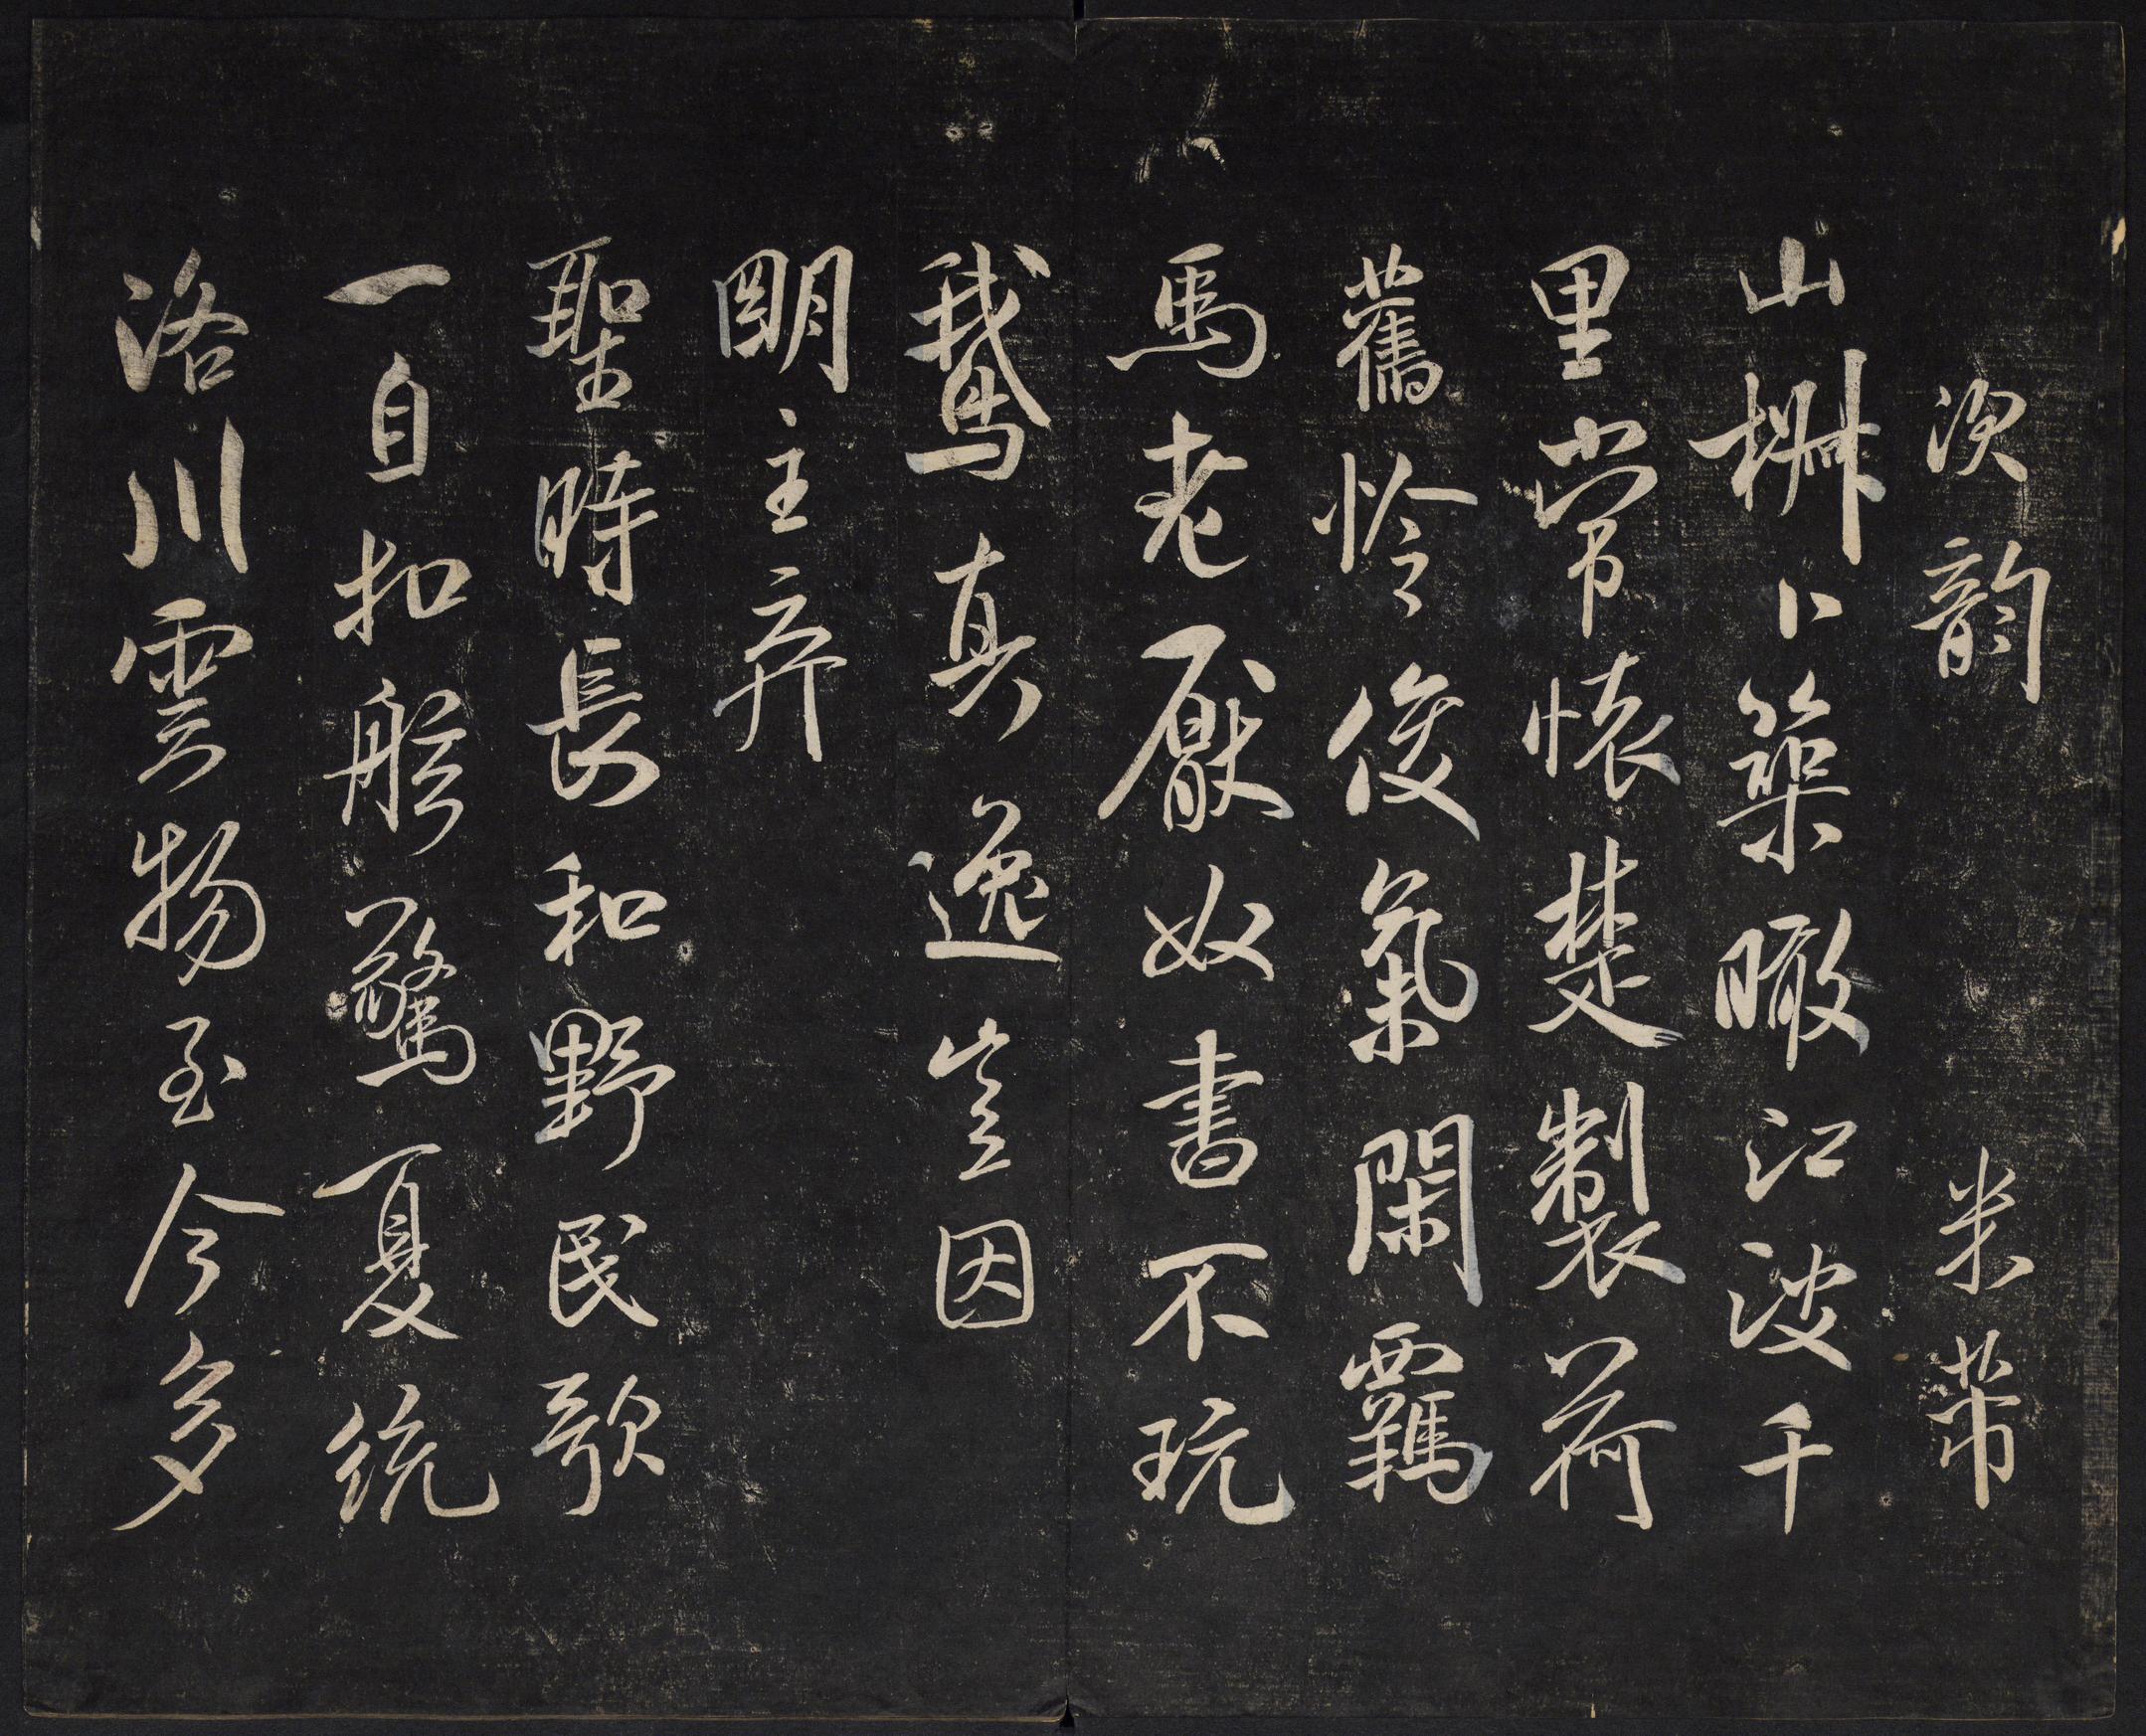 次韵 米芾
山椒卜築瞰江波千
里常懷楚製荷
舊怜俊氣閑羈
馬老厭奴書不玩
鵞真逸豈因
明主弃
聖時長和野民歌
一自扣舷驚夏統
洛川雲物至今多